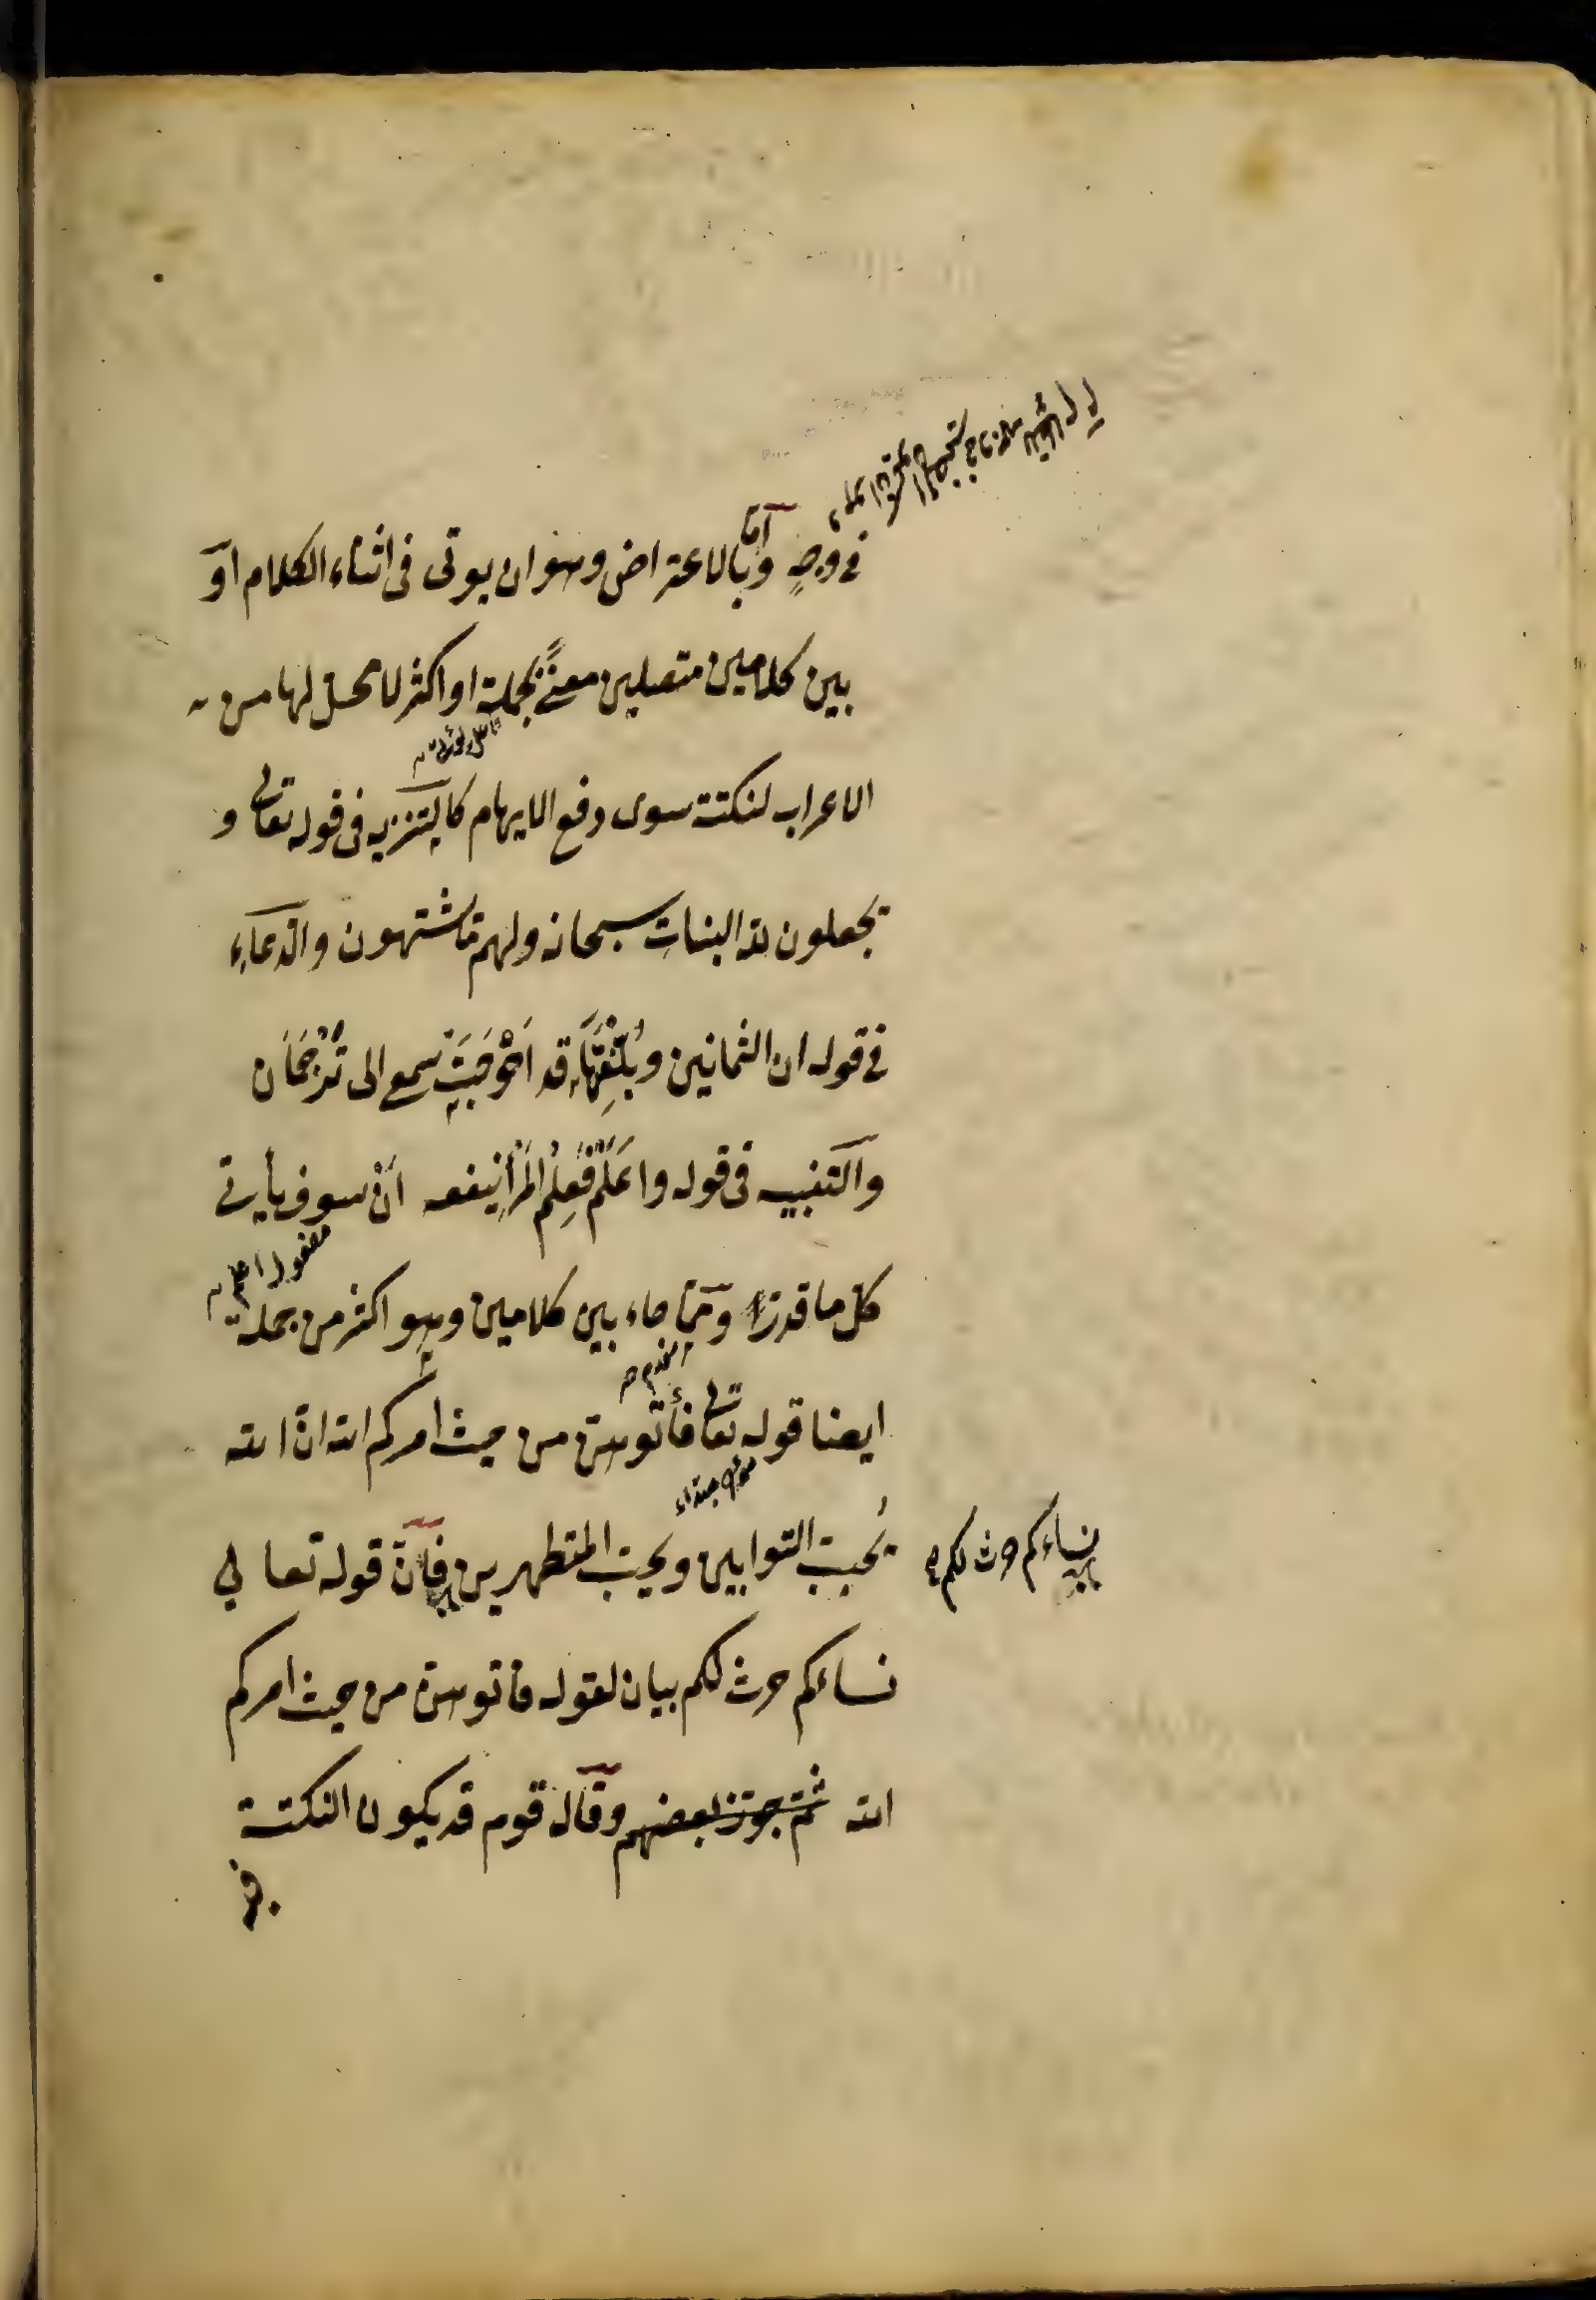 في وجهٍ وامّا بالاعتراض وهو ان يوتى فى اثناء الكلام او
بين كلامين متصلين معنًى بجملة او اكثر لا محل لها من
الاعراب لنكتة سوى دفع الايهام كالتنزيه فى قوله تعالى و
يجعلون لله البنات سبحانه ولهم ما يشتهون والدعاء
في قوله ان الثمانين وبُلِّغْتَهَا قد اَحْوَجَتْ سمعى الى تُرْجُمَان
والتنبيه فى قوله واعْلَمْ فَعِلْمُ المَرْأِ ينفعه اَنْ سوف يأتى
مفعول اعلم
كل ما قدرا ومما جاء بين كلامين وهو اكثر من جملة
ايضا قوله تعالى فأتوهنّ من حيث أمركم الله انّ الله
يُحِبّ التوابين ويحبّ المتطهرين فانّ قوله تعالى
نساءكم حرث لكم
نساءكم حرث لكم بيان لقوله فاتوهنّ من حيث امركم
الله ثمّ جوّز بعضهم وقال قوم قد يكون النكتة
فيه